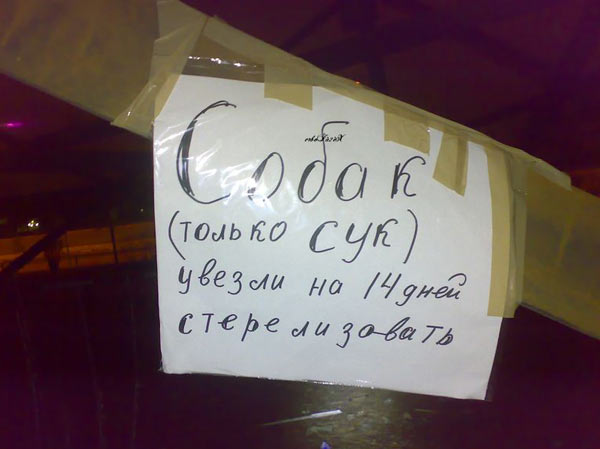 Собак
(только сук)
увезли на 14 дней
стерелизовать